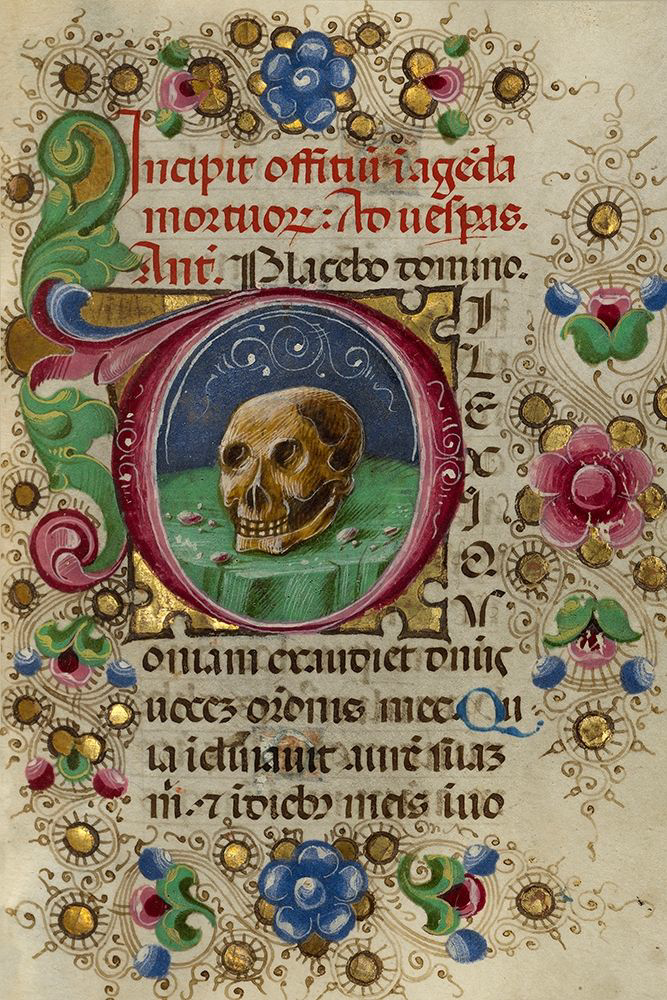 Incipit offitiū ī agēda
mortuoꝝ: Ad uesꝑas.
Ant̄. Placebo domino.
DILEXI QV
oniam exaudiet dn̄s
uocez or̄onis mee. Qu
ia īclinauit aurē suaz
m̄. ⁊ ī diebꝫ meis īuo